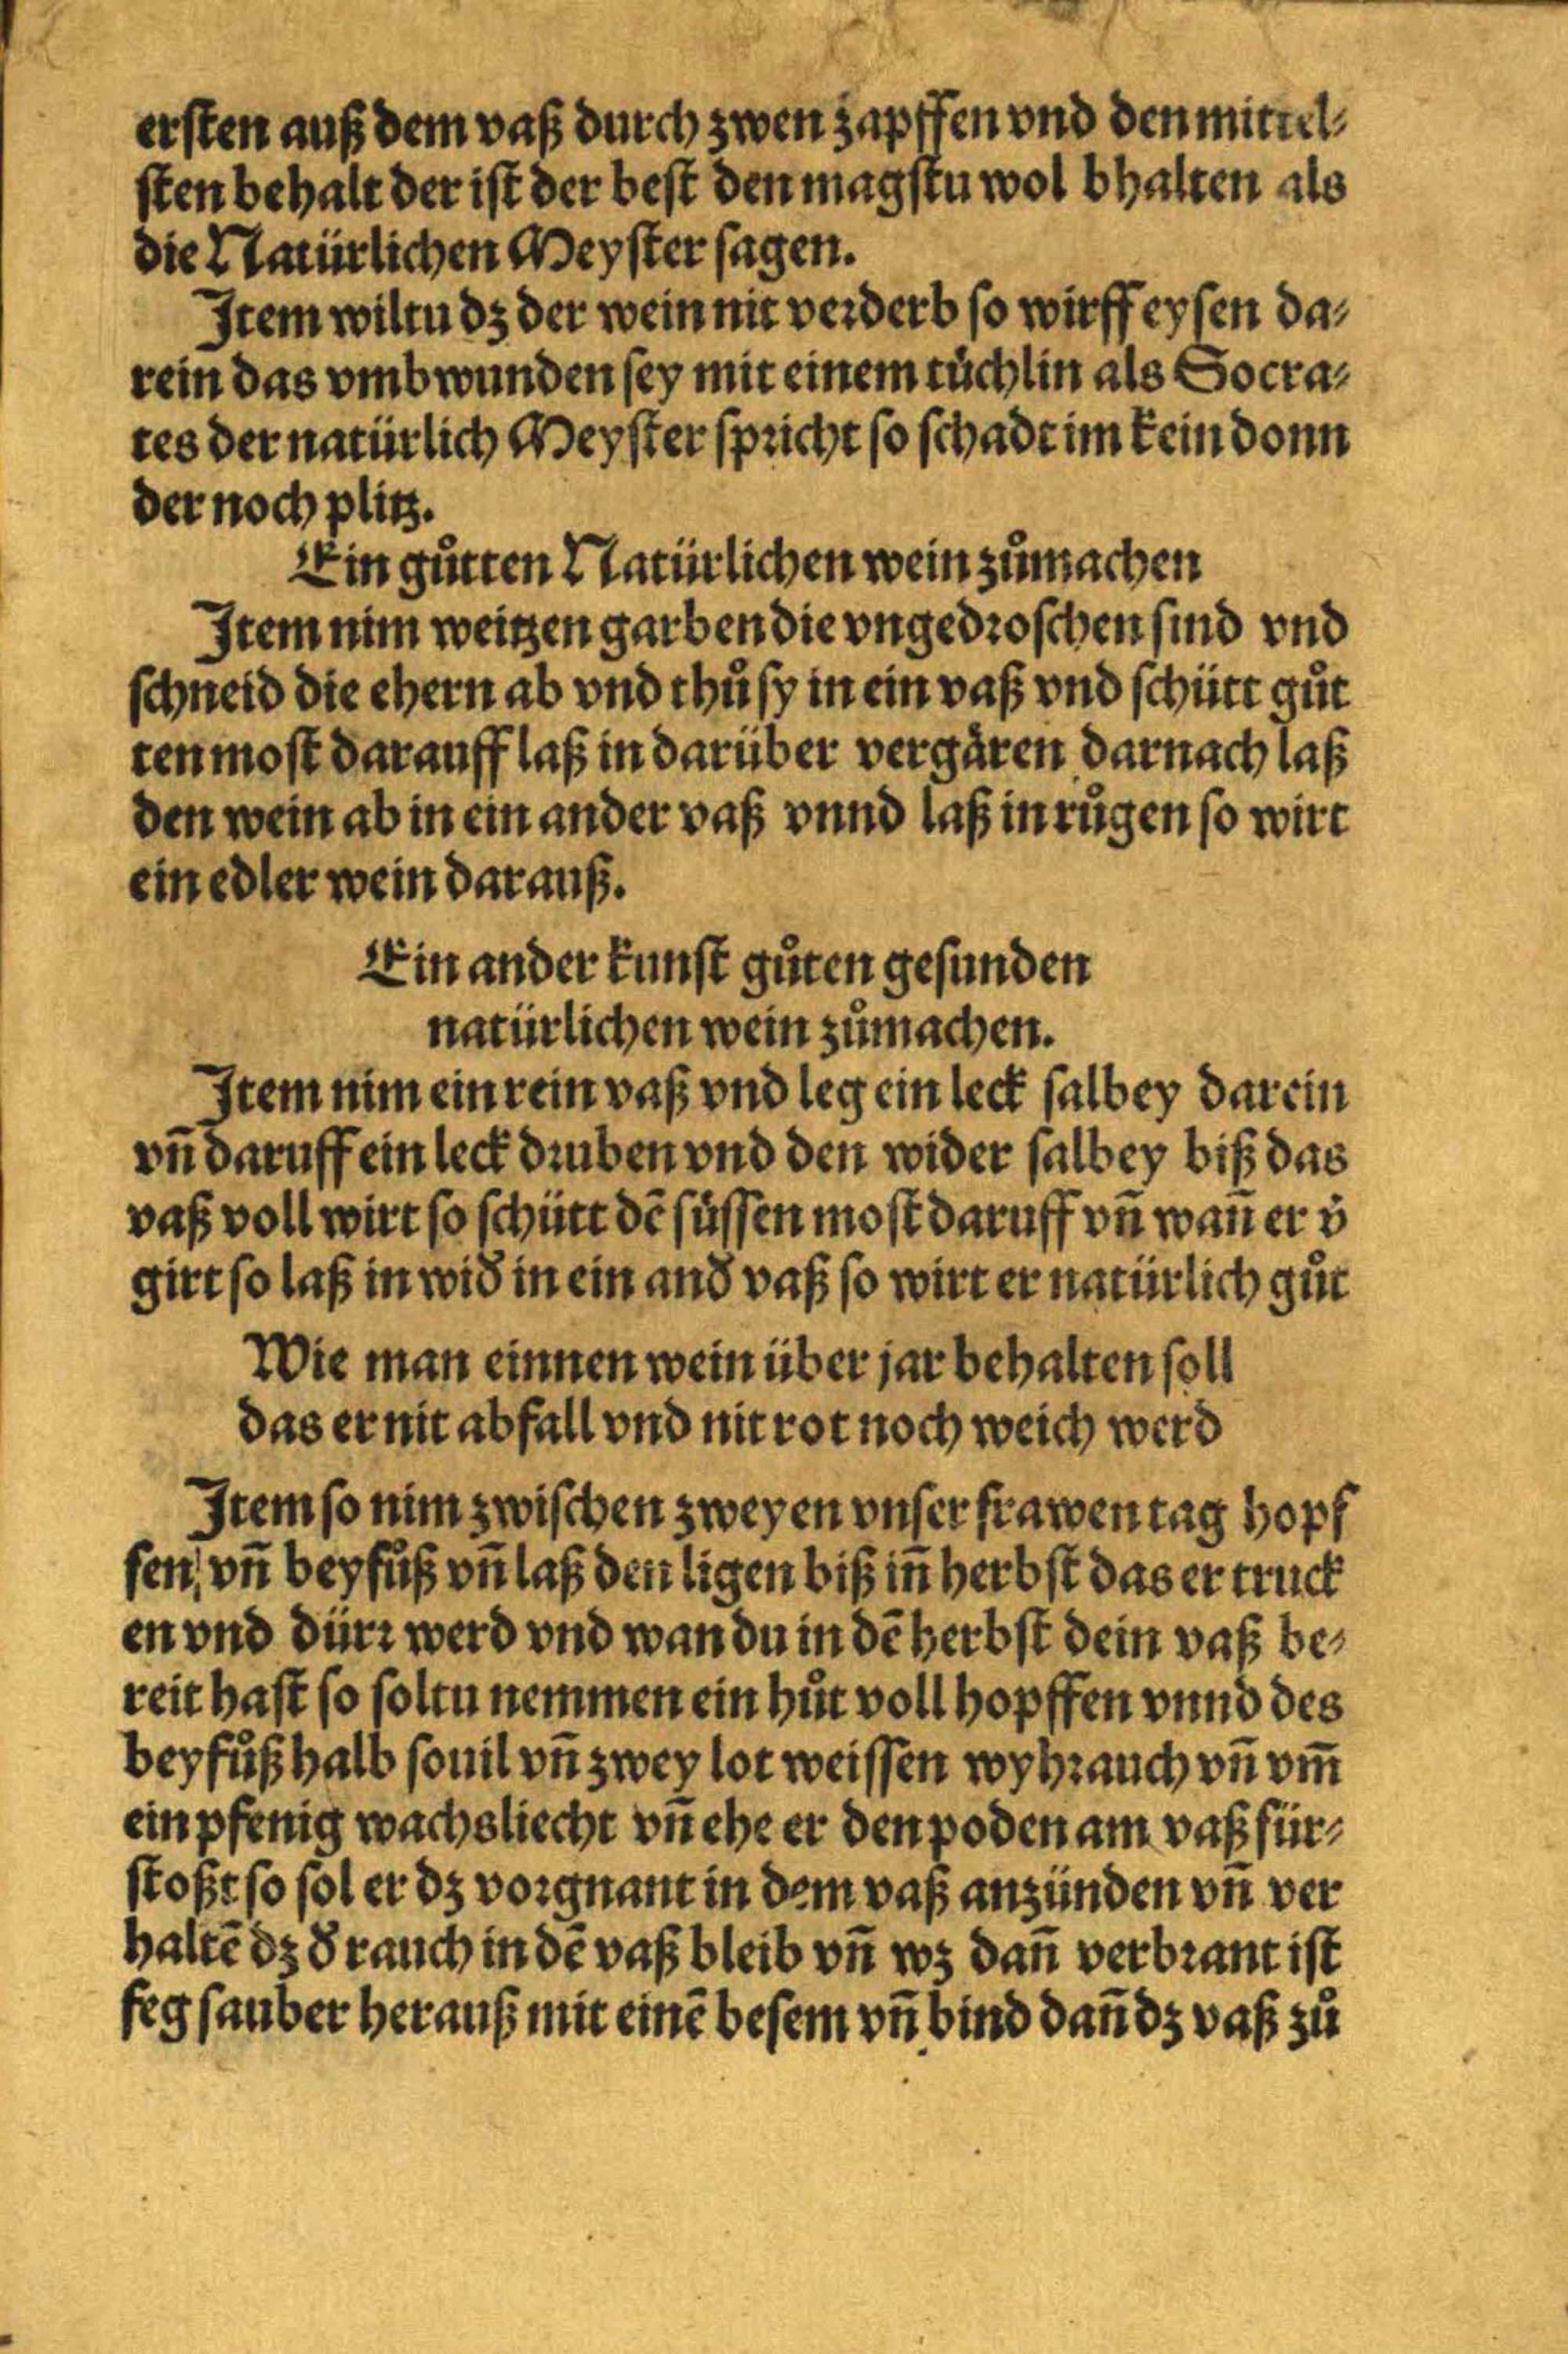 ersten auß dem vaß durch zwen zapffen vnd den mittel-
sten behalt der ist der best den magstu wol bhalten als
die Natürlichen Meyster sagen.
Item wiltu dz der wein nit verderb so wirff eysen da-
rein das vmbwunden sey mit einem tuͤchlin als Socra-
tes der natürlich Meyster spricht so schadt im kein donn
der noch plitz.
Ein guͦtten Natürlichen wein zuͦmachen
Item nim weitzen garben die vngedroschen sind vnd
schneid die ehern ab vnd thuͦ sy in ein vaß vnd schütt guͦt
ten most darauff laß in darüber vergaͤren darnach laß
den wein ab in ein ander vaß vnnd laß in ruͦgen so wirt
ein edler wein darauß.
Ein ander kunst guͦten gesunden
natürlichen wein zuͦmachen.
Item nim ein rein vaß vnd leg ein leck salbey darein
vn̄ daruff ein leck druben vnd den wider salbey biß das
vaß voll wirt so schütt dē suͤssen most daruff vn̄ wan̄ er v̓
girt so laß in wid̓ in ein and̓ vaß so wirt er natürlich guͦt
Wie man einnen wein über jar behalten soll
das er nit abfall vnd nit rot noch weich werd
Item so nim zwischen zweyen vnser frawen tag hopf
fen, vn̄ beyfuͦß vn̄ laß den ligen biß in̄ herbst das er truck
en vnd dürr werd vnd wan du in dē herbst dein vaß be-
reit hast so soltu nemmen ein huͦt voll hopffen vnnd des
beyfuͦß halb souil vn̄ zwey lot weissen wyhrauch vn̄ vm̄
ein pfenig wachsliecht vn̄ ehe er den poden am vaß für-
stoßt so sol er dz vorgnant in dem vaß anzünden vn̄ ver
haltē dz d̓ rauch in dē vaß bleib vn̄ wz dan̄ verbrant ist
feg sauber herauß mit einē besem vn̄ bind dan̄ dz vaß zuͦ